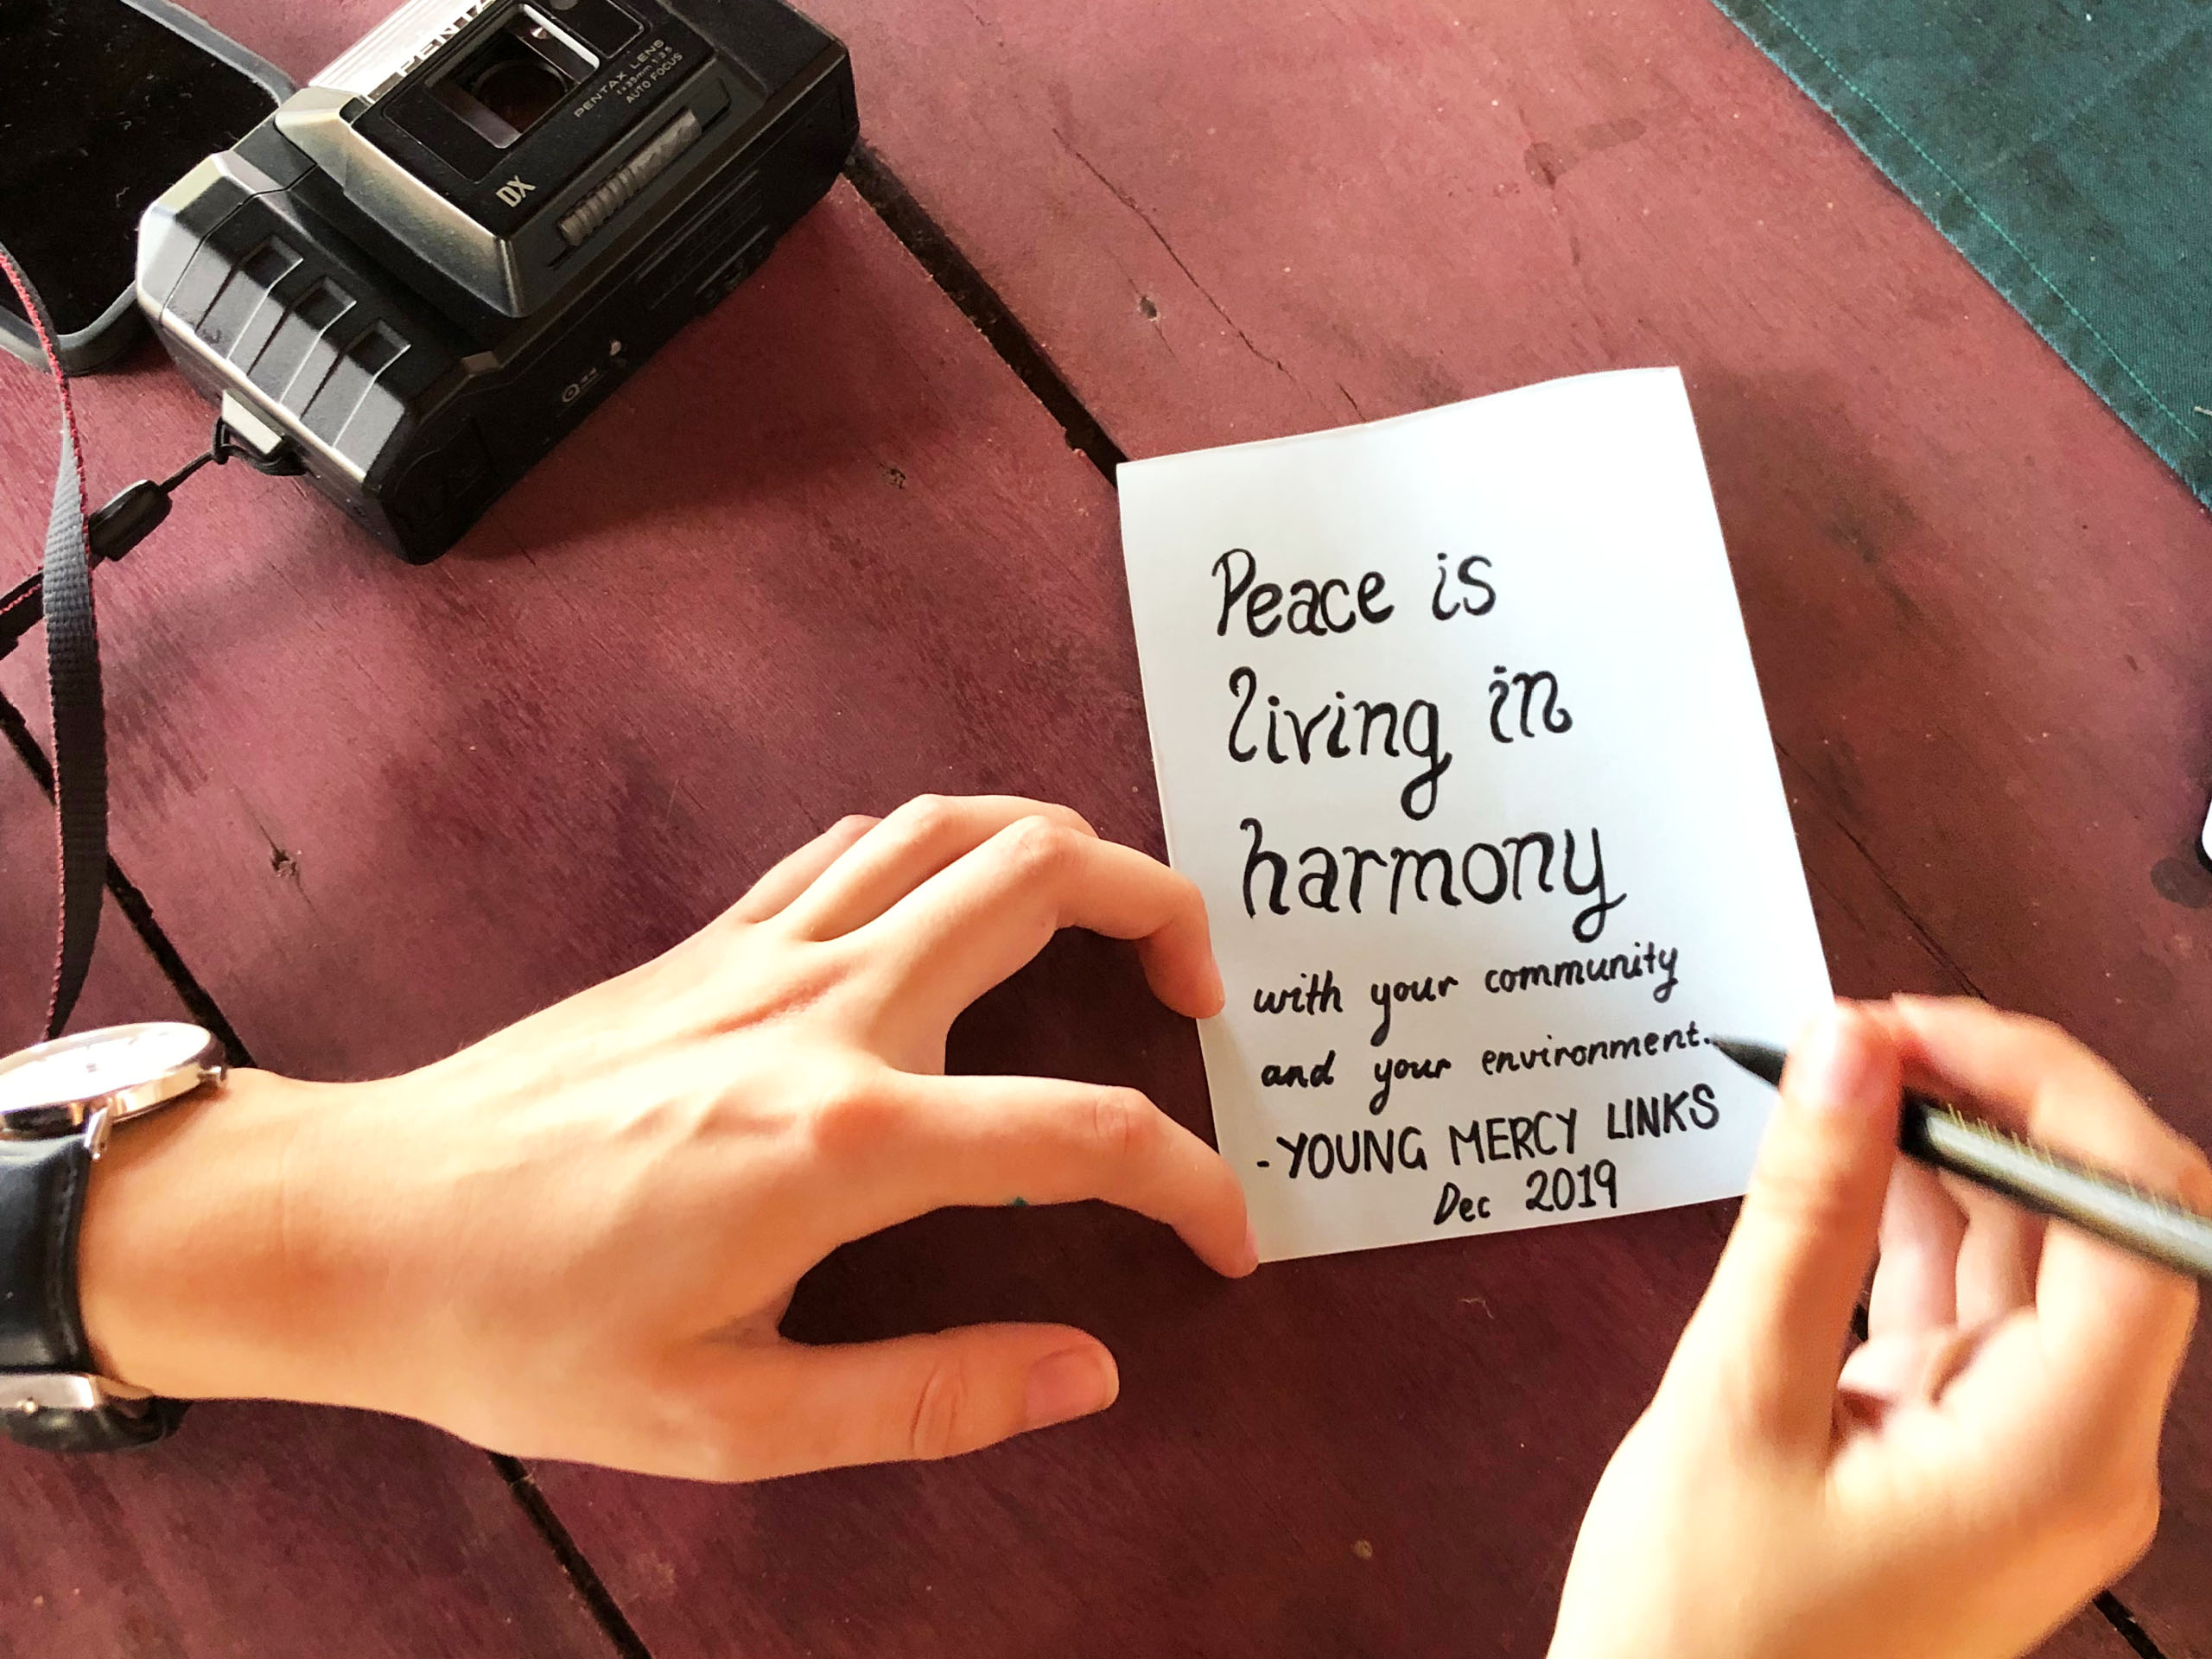 PENTA
PENTAX LENS
f=35mm 1:3.5
AUTO FOCUS
DX
Peace is
living in
harmony
with your community
and your environment.
-YOUNG MERCY LINKS
Dec 2019